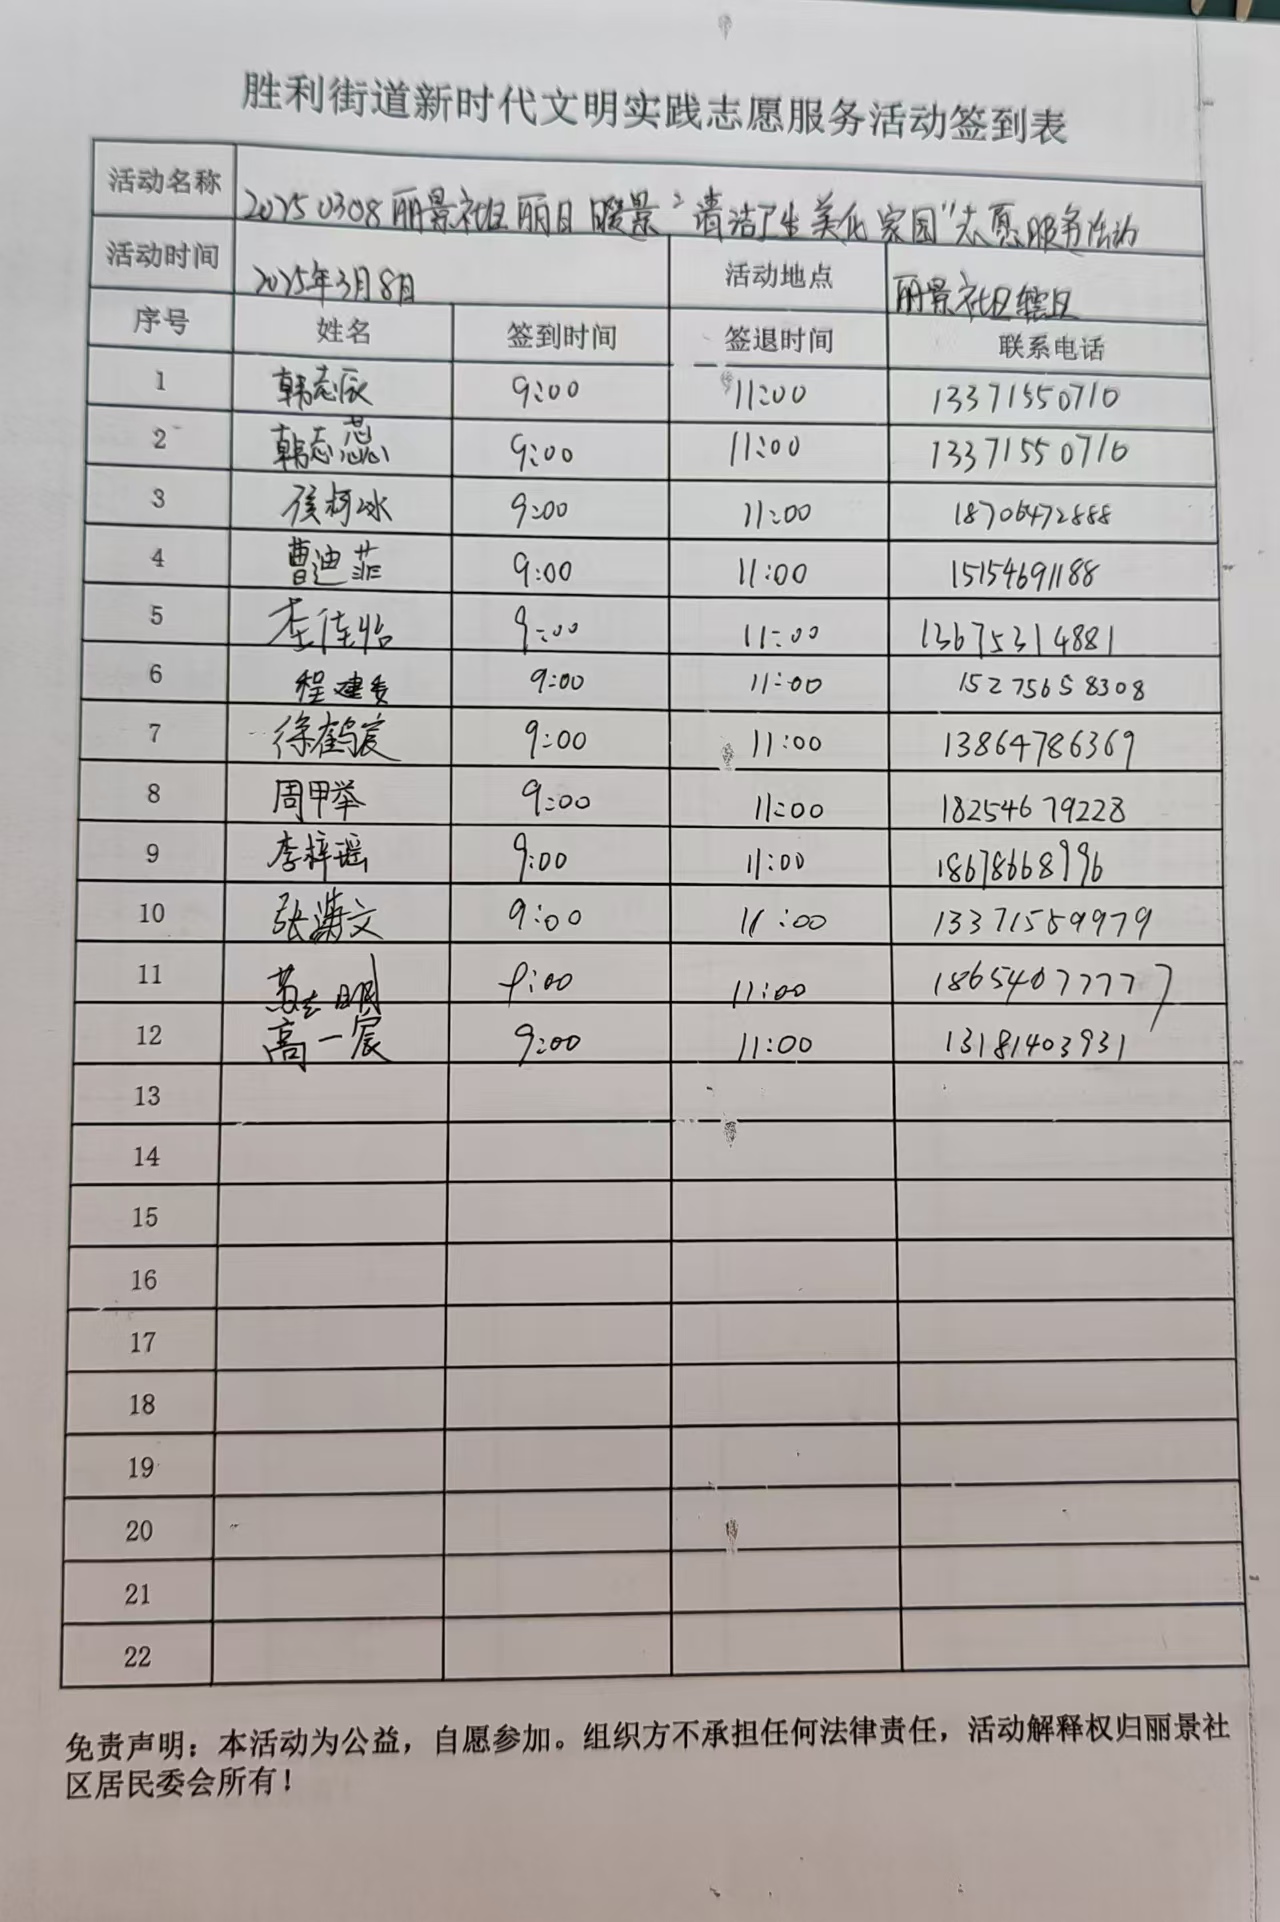 胜利街道新时代文明实践志愿服务活动签到表
活动名称 20250308丽景社区丽日暖景"清洁卫生美化家园"志愿服务活动
活动时间 2025年3月8日 活动地点 丽景社区辖区
序号 姓名 签到时间 签退时间 联系电话
1 韩志辰 9:00 11:00 13371550710
2 韩志蕊 9:00 11:00 13371550710
3 侯柯冰 9:00 11:00 18706472888
4 曹迪菲 9:00 11:00 15154691188
5 李佳怡 9:00 11:00 13675314881
6 程建 9:00 11:00 15275658308
7 徐鹤宸 9:00 11:00 13864786369
8 周甲举 9:00 11:00 18254679228
9 李梓瑶 9:00 11:00 18678668996
10 张文 9:00 11:00 13371559979
11 明 9:00 11:00 18654077777
12 高一宸 9:00 11:00 13181403931
13
14
15
16
17
18
19
20
21
22
免责声明：本活动为公益，自愿参加。组织方不承担任何法律责任，活动解释权归丽景社
区居民委会所有！